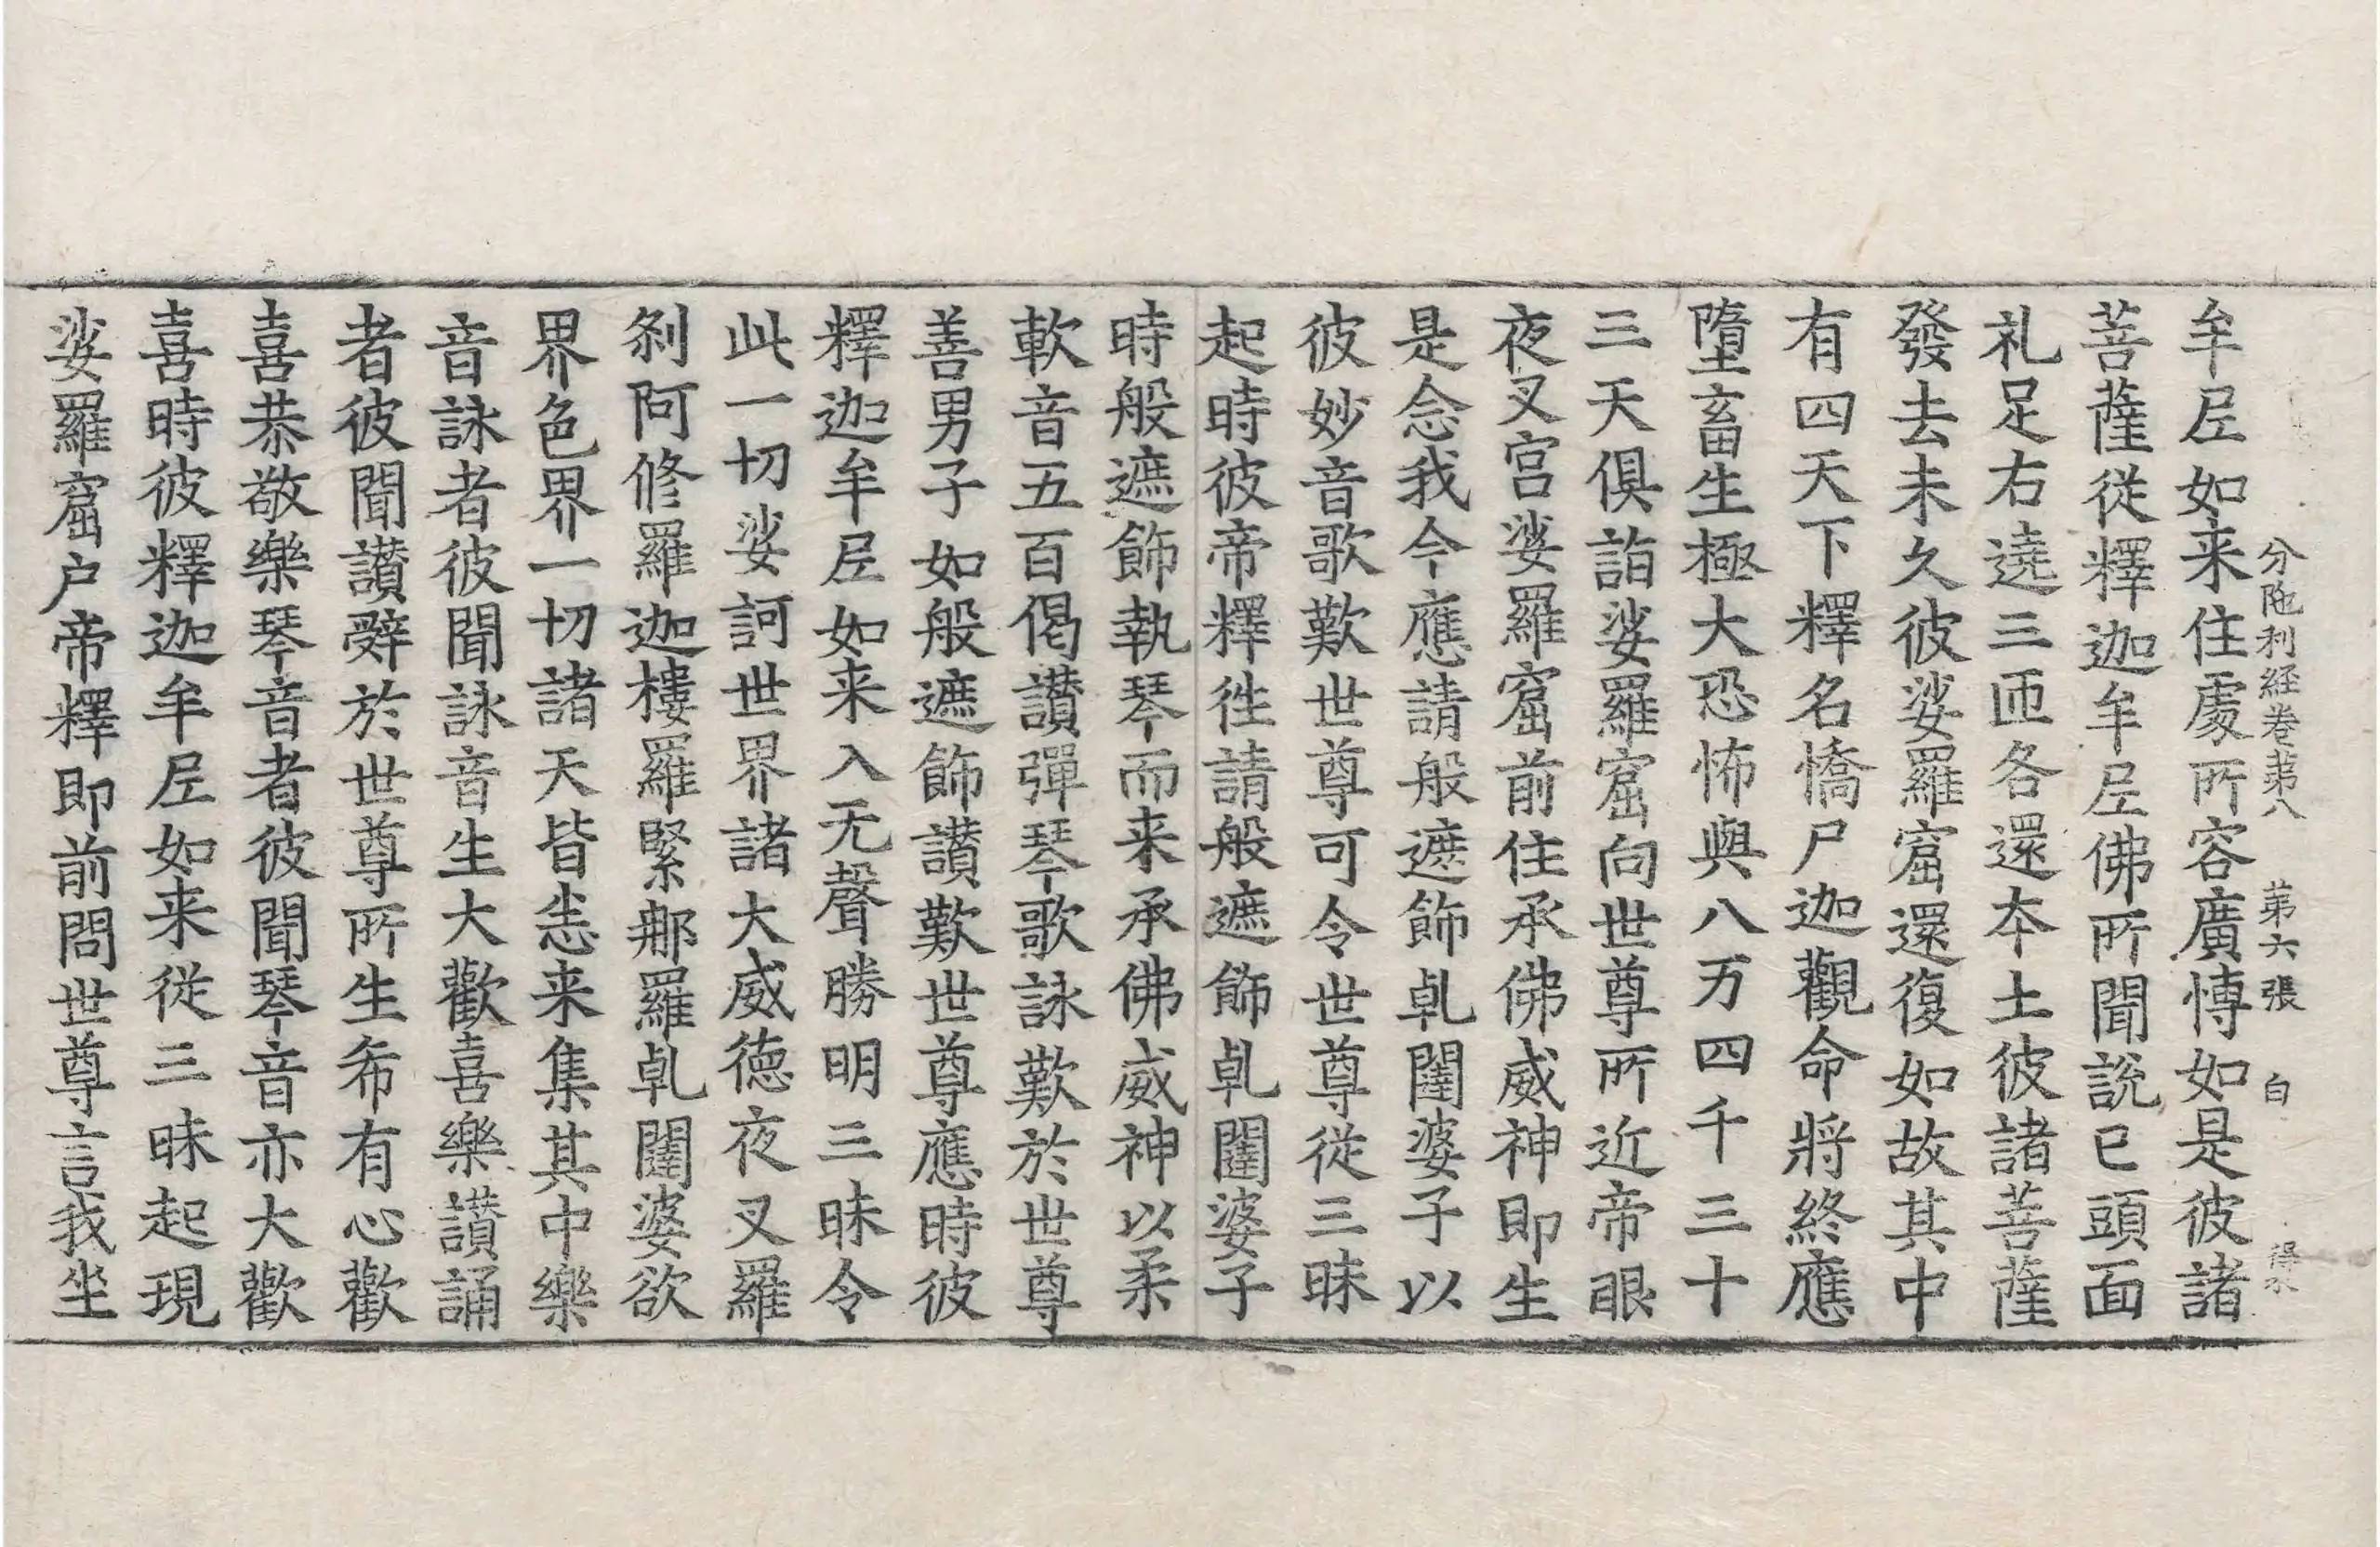 分陁利経卷苐八 苐六張 白 得水
牟𡰱如来住處所容廣博如是彼諸
菩薩從釋迦牟𡰱佛所聞說已頭面
礼足右遶三匝各還本土彼諸菩薩
發去未久彼娑羅窟還復如故其中
有四天下釋名憍尸迦觀命將終應
墮畜生極大恐怖與八万四千三十
三天俱詣娑羅窟向世尊所近帝眼
夜叉宮娑羅窟前住承佛威神即生
是念我今應請般遮飾乹闥婆子以
彼妙音歌歎世尊可令世尊從三昧
起時彼帝釋徃請般遮飾乹闥婆子
時般遮飾執琴而来承佛威神以柔
軟音五百偈讃彈琴歌詠歎於世尊
善男子如般遮飾讃歎世尊應時彼
釋迦牟𡰱如来入无聲勝明三昧令
此一切娑訶世界諸大威德夜叉羅
剎阿修羅迦樓羅緊那羅乹闥婆欲
界色界一切諸天皆悉来集其中樂
音詠者彼聞詠音生大歡喜樂讃誦
者彼聞讃辤於世尊所生希有心歡
喜恭敬樂琴音者彼聞琴音亦大歡
喜時彼釋迦牟𡰱如来從三昧起現
娑羅窟户帝釋即前問世尊言我坐